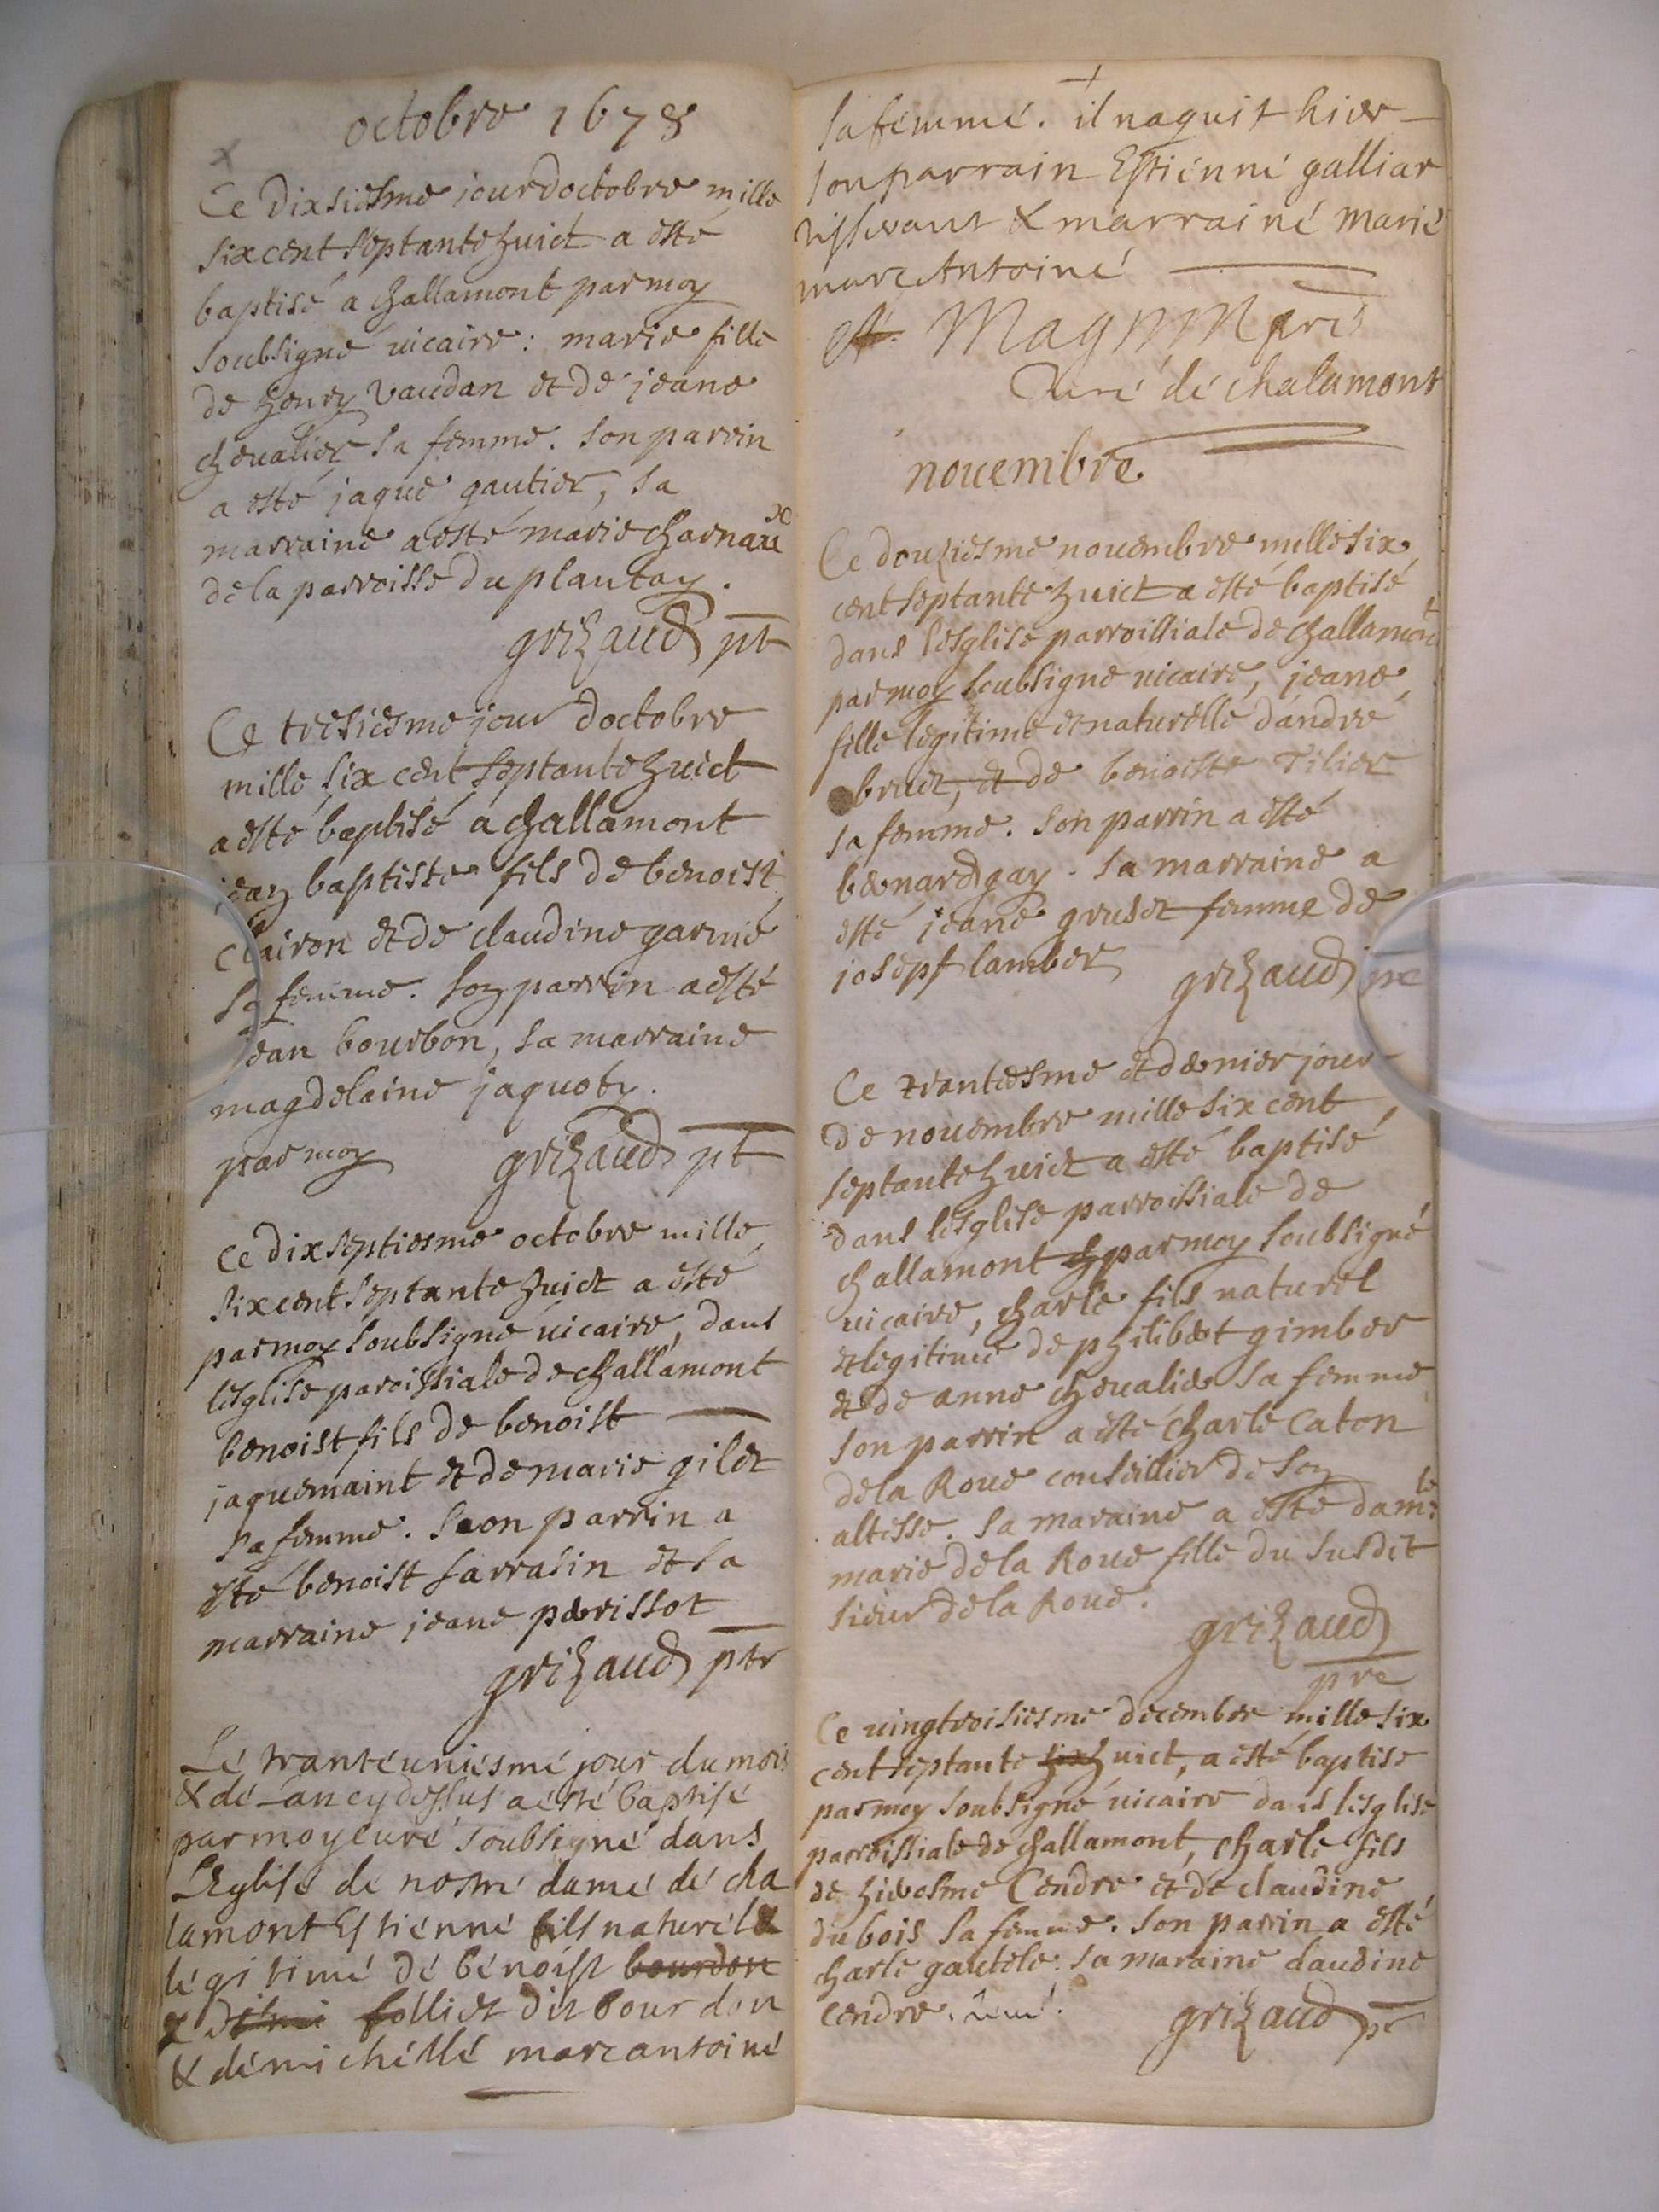 octobre 1678
x
Ce dixsiesme jour doctobre mille
six cent septante huict a esté
baptisé a challamont par moy
soubsigné uicaire : marie fille
de henry vaudan et de jeane
cheualier sa femme. son parrin
a esté jaque gautier, sa
marraine a esté marie charnaux
de la parroisse du plantay.
grizaud pt
Ce tresiesme jour doctobre
mille six cent septante huict
a esté baptisé a challamont
jean baptiste fils de benoist
clairon et de claudine garnié
sa femme. son parrin a esté
jean bourbon, sa marraine
magdelaine jaquots.
par moy grizaud pt
ce dixseptiesme octobre mille
six cent septante huict a esté
par moy soubsigné uicaire, dans
lesglise paroissiale de challamont
benoist fils de benoist
jaquemaint et de marie gilet
sa femme. son parrin a
esté benoist sarrasin et sa
marraine jeane perrissot
grizaud ptr
Lé trantéuniésmé jour du mois
& dé lan cy dessus a esté baptisé
par moy curé soubsigné dans
L'Eglisé dé nostré damé dé cha
lamont Estiénné fils naturél &
légitimé dé bénoist bourdon
& folliet dit bourdon
& dé michéllé marcantoiné
+
sa fémmé. il naquit hier
son parrain Estiénné galliar
& marrainé Marié
marc Antoiné
Magnin pré
Curé dé chalamont
nouembre
Ce douziesme nouembre mille six
cent septante huict a esté baptisé
dans lesglise parroissiale de challamont
par moy soubsigné uicaire, jeane
fille legitime et naturelle dandré
bruet, et de benoiste Tilier
sa femme. son parrin a esté
bernard gay. sa marraine a
esté jeane gruset femme de
josepf lamber grizaud pre
Ce trantiesme et dernier jour
de nouembre mille six cent
septante huict a esté baptisé
dans lesglise parroissiale de
challamont par moy soubsigné
uicaire, charle fils naturel
et legitime de philibert gimber
et de anne cheualier sa femme
son parrin a esté charle Caton
de la Roue conseillier de son
altesse. sa maraine a esté damle
marie de la Roue fille du susdit
sieur de la Roue.
grizaud
pre
Ce uingtroisiesme decembre mille six
cent septante huict, a esté baptise
par moy soubsigné uicaire dans lesglise
parroissiale de challamont, charle fils
de hierosme Cendre et de claudine
du bois sa femme. son parrin a esté
charle gautele. sa maraine claudine
cendre. grizaud pr